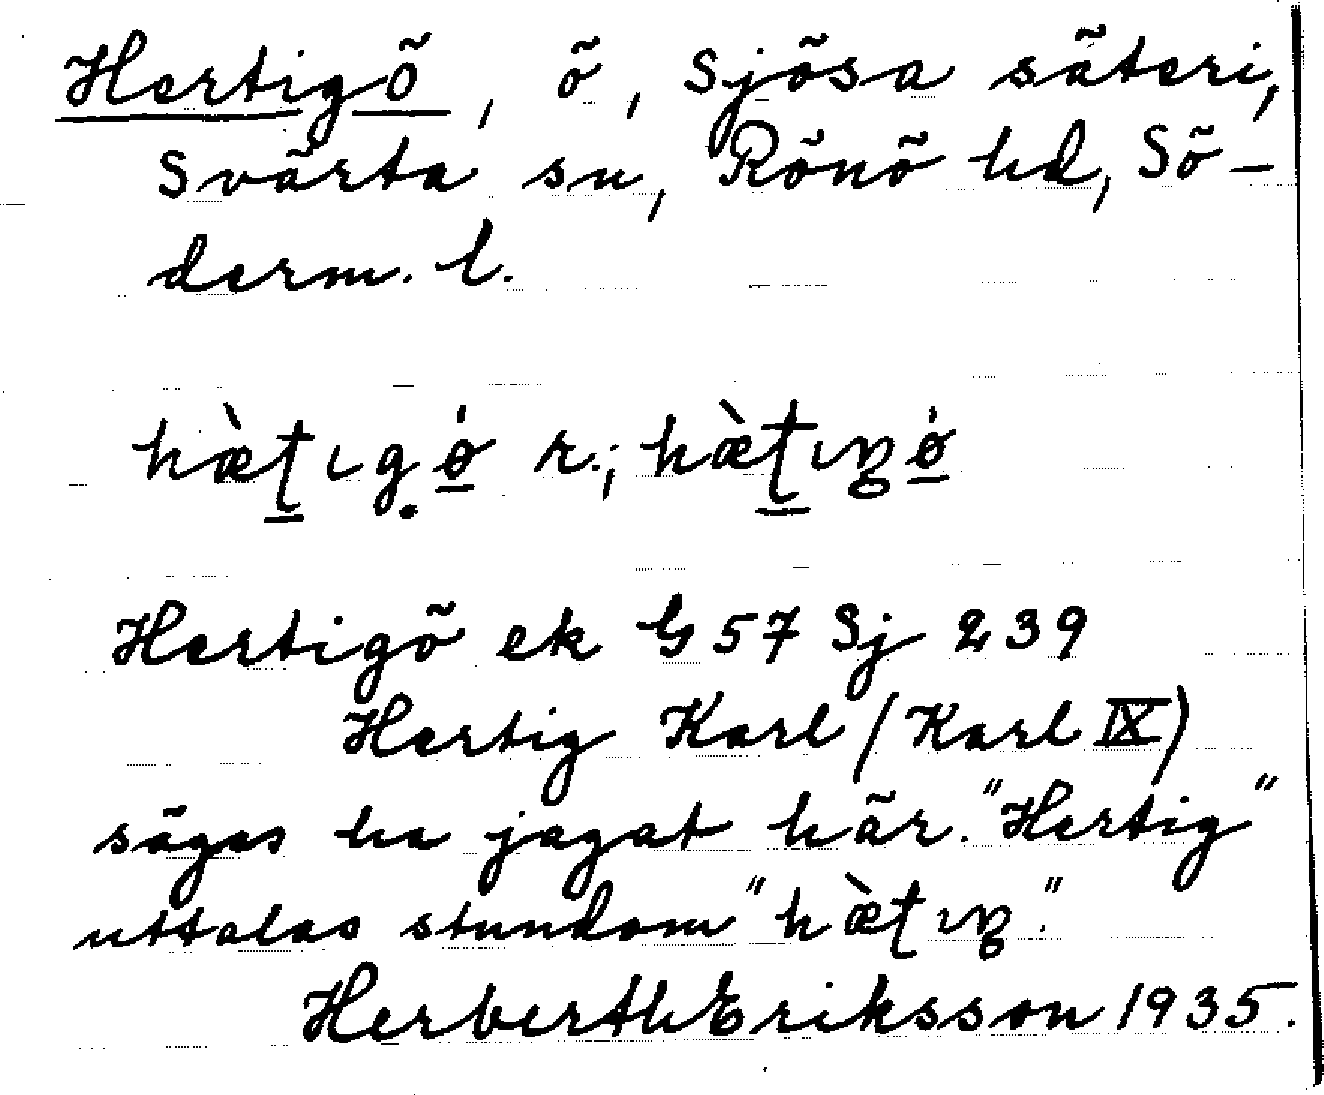 Hertigö, ö, Sjösa säteri,
Svärta sn, Rönö hd, Sö-
derm. l.
hæ̀ʈıgǿ r.; hæ̀ʈıŋǿ
Hertigö ek G 57 Sj 239
Hertig Karl (Karl IX)
säges ha jagat här. "Hertig"
uttalas stundom "hæ̀ʈıŋ".
Herbert Eriksson 1935.